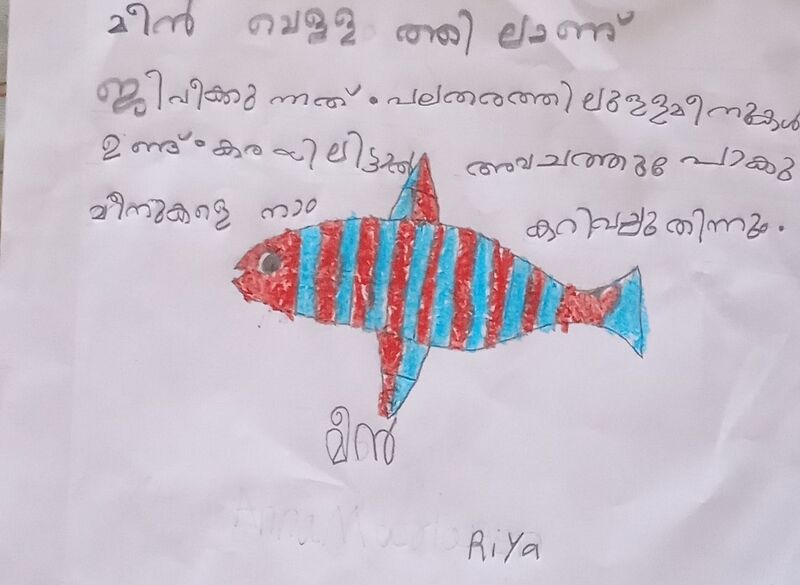 മീൻ വെള്ള ത്തി ലാണ്
ജീവിക്കു ന്നത്. പലതരത്തി ലുള്ളമീനുകൾ
ഉണ്ട്. കരയി ലിട്ടാൽ അവചത്തു പോകു
മീനുകളെ നാം കറിവച്ചു തിന്നും.
മീൻ
RiYa